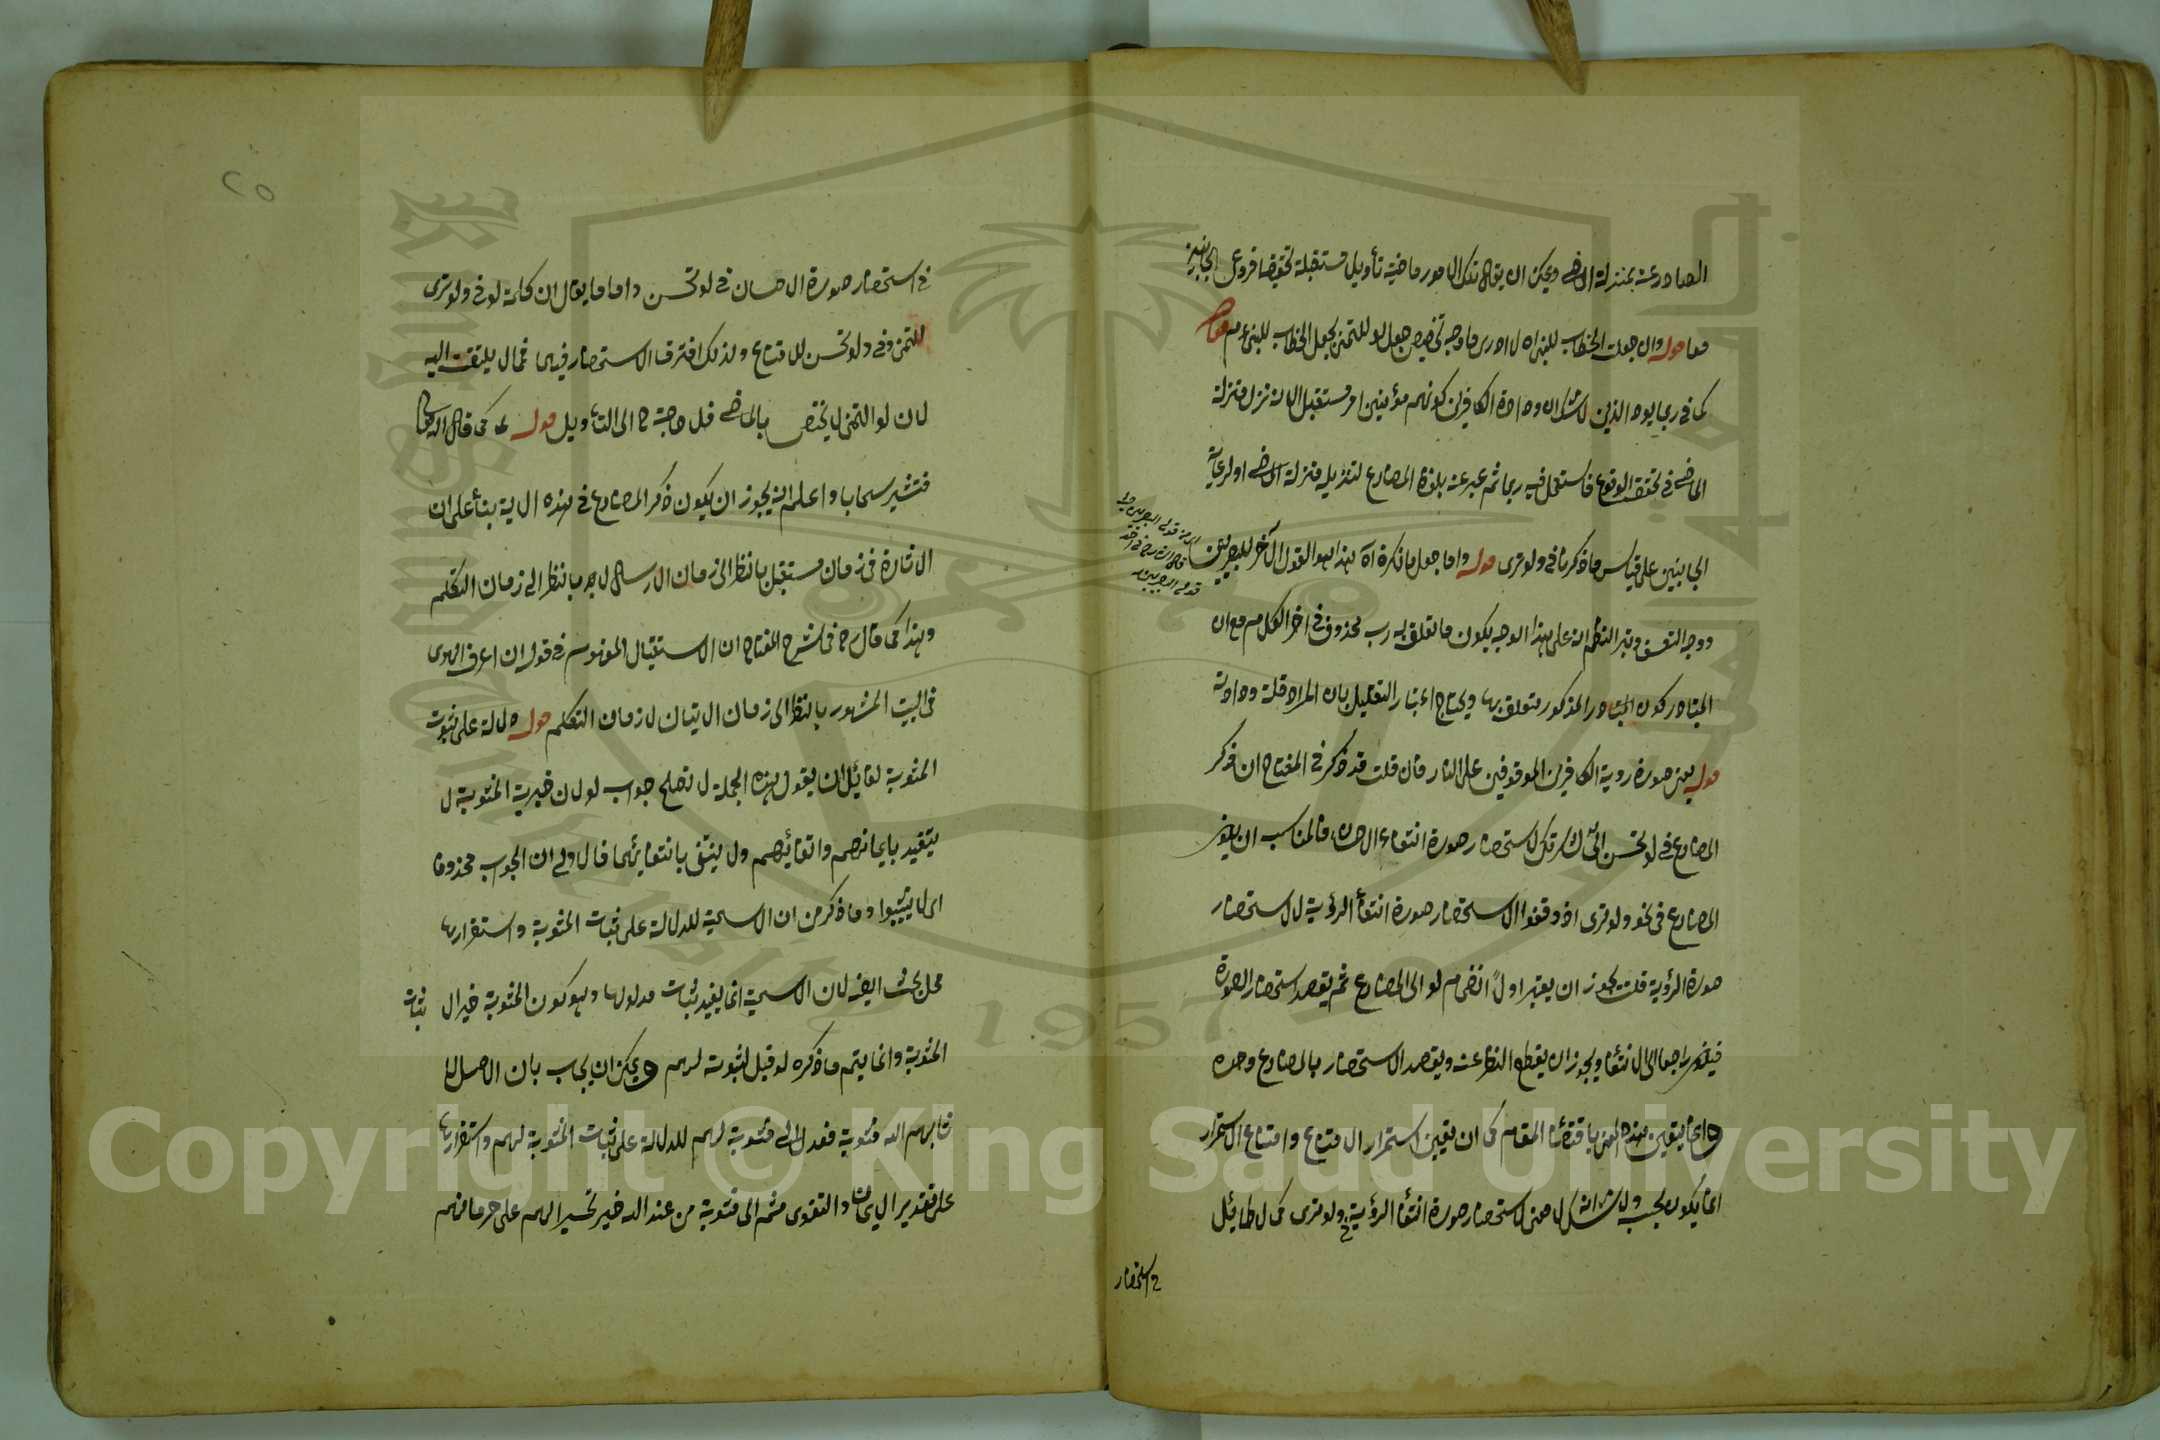 الصادر عنه بمنزلة الماضي ويمكن ان يقال تلك الامور ماضية تأويلا مستقبلة تحقيقا فروعي الجانبين
معا قوله وان جعلت الخطاب للنبي اه لا ادرى ما وجه تخصيص جعل لو للتمني بجعل الخطاب للنبي عم قوله
كما في ربما يود الذين لا شك ان ودادة الكافرين كونهم مؤمنين امر مستقبل الا انه نزل منزلة
الماضي في تحقق الوقوع فاستعمل فيه ربما ثم عبر عنه بلفظ المضارع لتنزيله منزلة الماضي او لرعاية
الجانبين على قياس ما ذكرنا في ولو ترى قوله واما جعل ما نكرة آه هذا هو القول الآخر للبصريين
ووجه التعسف وبتر النظم انه على هذا الوجه يكون ما تعلق به رب محذوف في اخر الكلام مع ان
المتبادر كون المتبادر المذكور متعلق بها ويحتاج اعتبار التقليل بان المراد قلة ودادته
قوله يعني صورة روية الكافرين الموقوفين على النار فان قلت قد ذكر في المفتاح ان ذكر
المضارع في لو تحسن الي لشكرتك لاستحضار صورة انتفاء الاحسان فالمناسب ان يكون
المضارع في نحو ولو ترى اذ وقفوا لاستحضار صورة انتفاء الرؤية لا لاستحضار
صورة الرؤية قلت يجوز ان يعتبر اولا انضمام لو الى المضارع ثم يقصد استحضار الصورة
فيكون راجعا الى الانتفاء ويجوز ان يقطع النظر عنه ويقصد الاستحضار بالمضارع وحده
وانما يتعين هذه المعنى باقتضاء المقام كما ان تعين استمرار الامتناع وامتناع الاستمرار
انما يكون بحسبه ولا شك انه لا معنى لاستحضار صورة انتفاء الرؤية في ولو ترى كما لا طائل
في استحضار
٢٥
في استحضار صورة الاحسان في لو تحسن واما ما يقال ان كلمة لو في ولو ترى
للتمني وفي ولو تحسن للامتناع ولذلك افترق الاستحضار فيهما فمما لا يلتفت اليه
لان لو التمني لا يختص بالماضي فلا حاجة ح الى التأويل قوله كما قال الله تعالى
فتثير سحابا واعلم انه يجوز ان يكون ذكر المضارع في هذه الاية بناء على ان
الاثارة في زمان مستقبل بالنظر الى زمان الارسال لا بالنظر الى زمان التكلم
وهذا كما قال رح في شرح المفتاح ان الاستقبال المفهوم في قوله ان اعرف الهوى
في البيت المشهور بالنظر الى زمان الاتيان لا زمان التكلم قوله دلالة على ثبوت
المثوبة لقائل ان يقول هذه الجملة لا تصلح جواب لو لان خيرية المثوبة لا
يتقيد بايمانهم واتقائهم ولا ينتفي بانتفائهما فالاولى ان الجواب محذوف
اى لاثيبوا وما ذكر من ان الاسمية للدلالة على ثبات المثوبة واستقرارها
محل بحث ايضا لان الاسمية انما يفيد ثبات مدلولها وهو كون المثوبة خيرا لا ثبات
المثوبة وانما يتم ما ذكره لو قيل لثبوت لهم ويمكن ان يجاب بان الاصل لا
ثابهم الله مثوبة فعدل الى مثوبة لهم للدلالة على ثبات المثوبة لهم واستقرارها
على تقدير الايمان والتقوى ثم الى مثوبة من عند الله خير تحسيرا لهم على حرمانهم
Copyright © King Saud University
1957